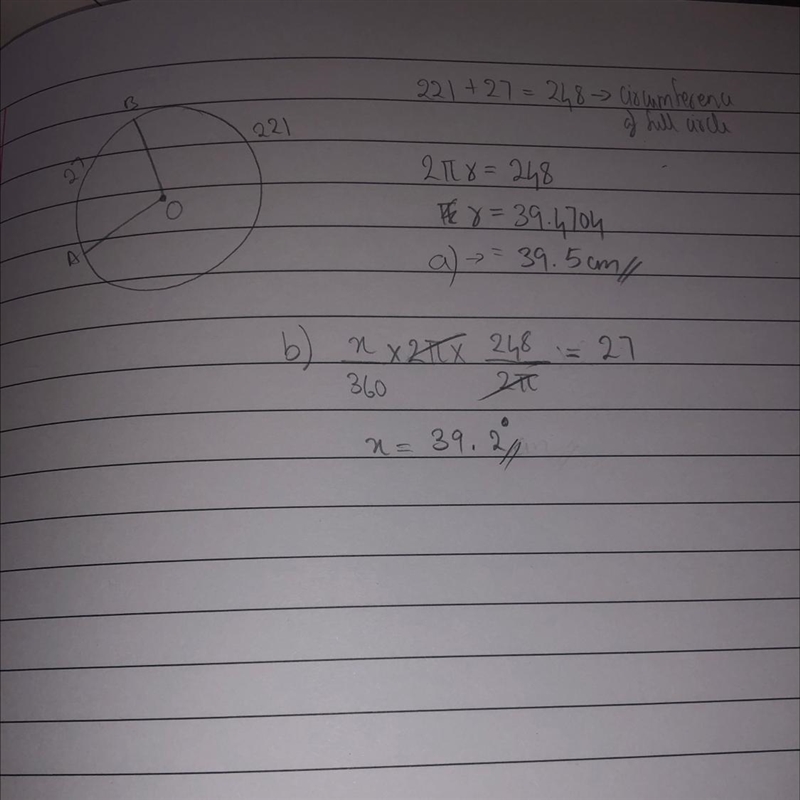 B
221
27
O
A
221 + 27 = 248 → circumference
of full circle
2πr = 248
r = 39.4704
a) → = 39.5cm//
b) x/360 × 2π × 248/2π = 27
x = 39.2°//